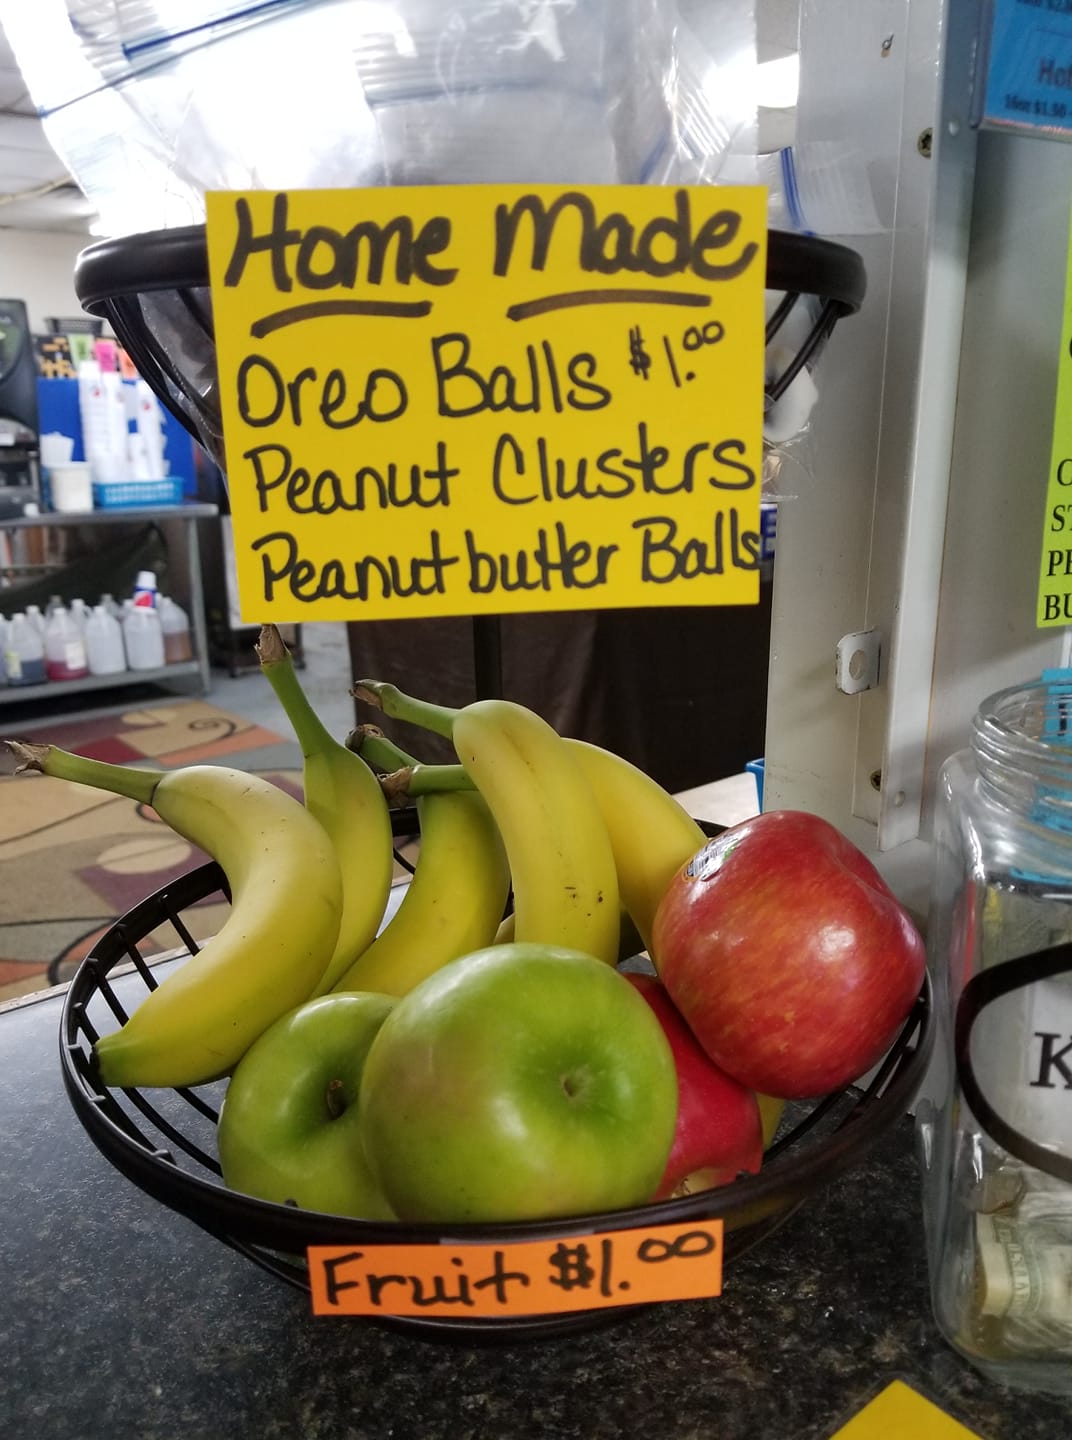 Home Made
Oreo Balls $1.00
Peanut Clusters
Peanutbutter Balls
Fruit $1.00
16oz $1.50
K